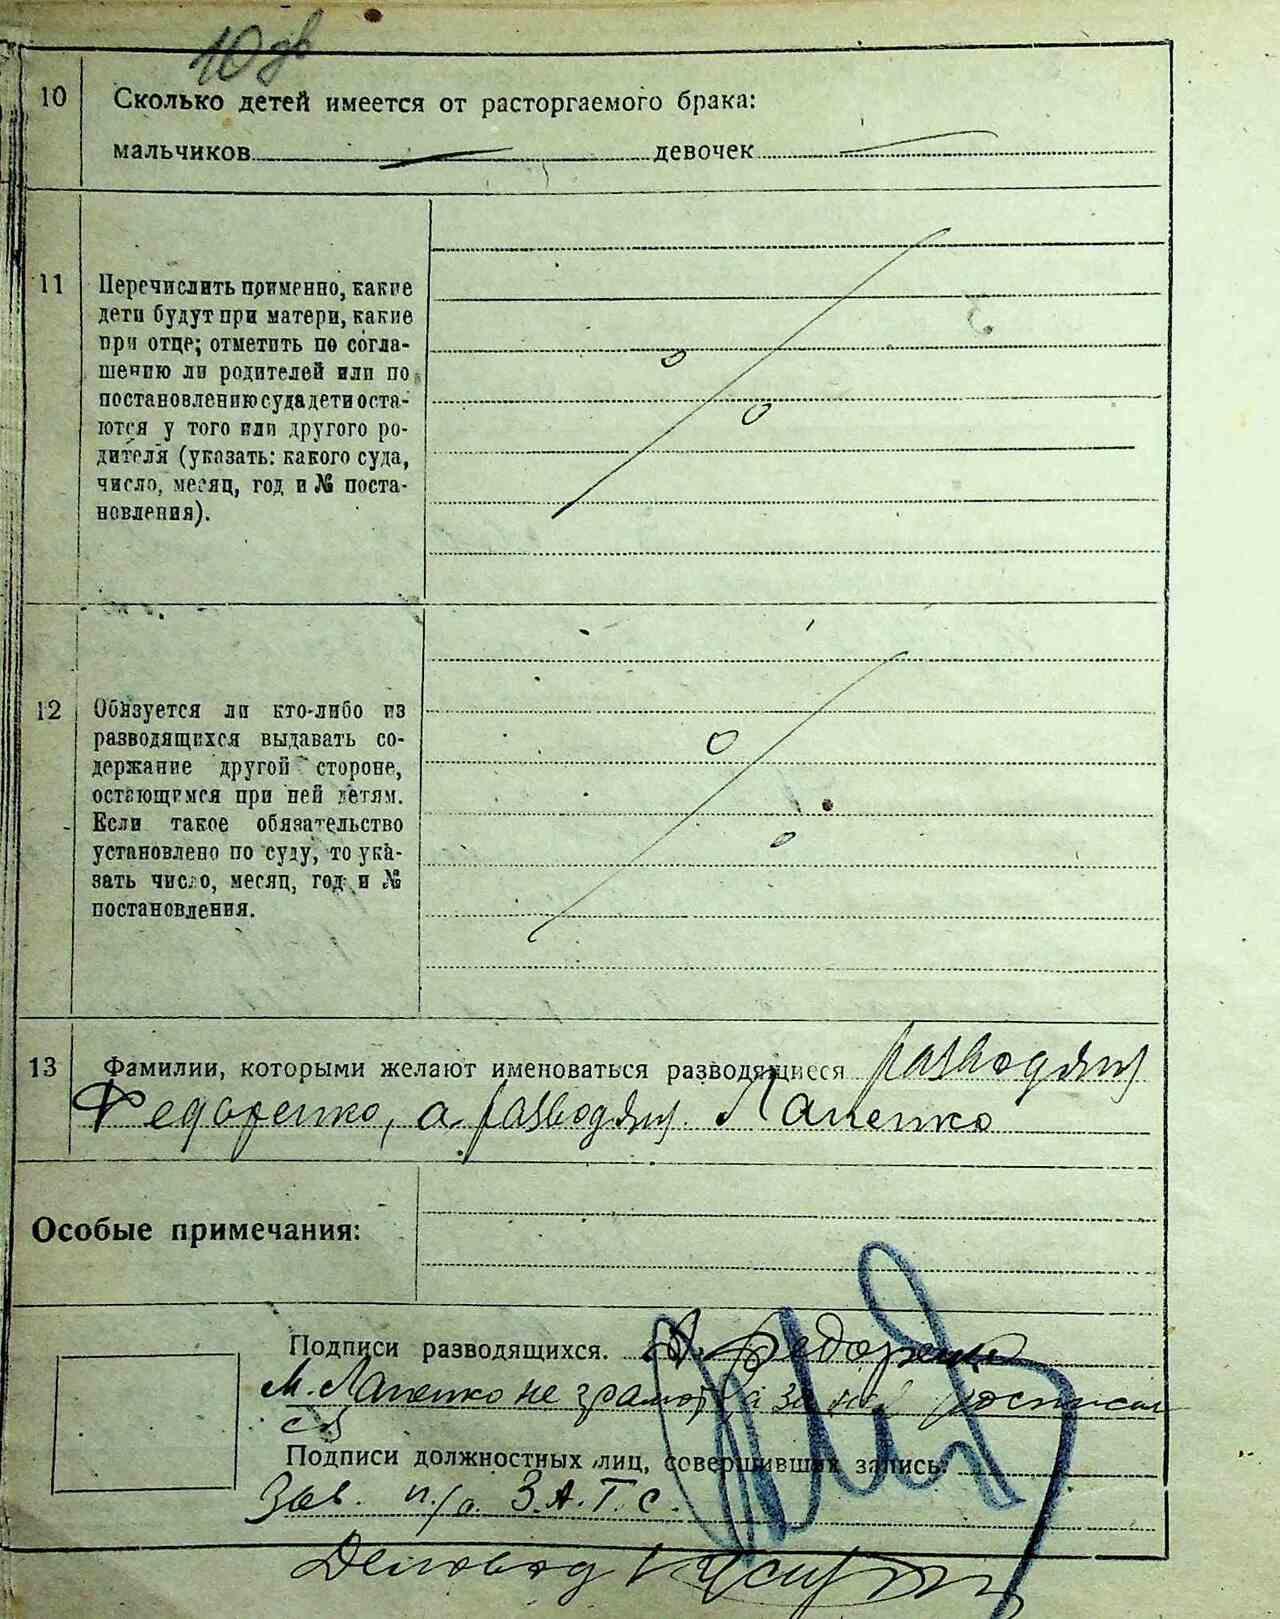 10
10 Сколько детей имеется от расторгаемого брака:
мальчиков девочек
11 Перечислить применно, какие
дети будут при матери, какие
при отце; отметить по согла-
шению ли родителей или по
постановлению суда дети оста-
ются у того или другого ро-
дителя (указать: какого суда,
число, месяц, год и № поста-
новления).
12 Обязуется ли кто-либо из
разводящихся выдавать со-
держание другой стороне,
остающимся при ней детям.
Если такое обязательство
установлено по суду, то ука-
зать число, месяц, год и №
постановления.
13 Фамилии, которыми желают именоваться разводящиеся
Федоренко, а Лапенко
Особые примечания:
Подписи разводящихся. А. Федоренко
М. Лапенко не грамот а за росписал
ся
Подписи должностных лиц, совершивших запись:
Зав. п/о З.А.Г.С.
Деловод